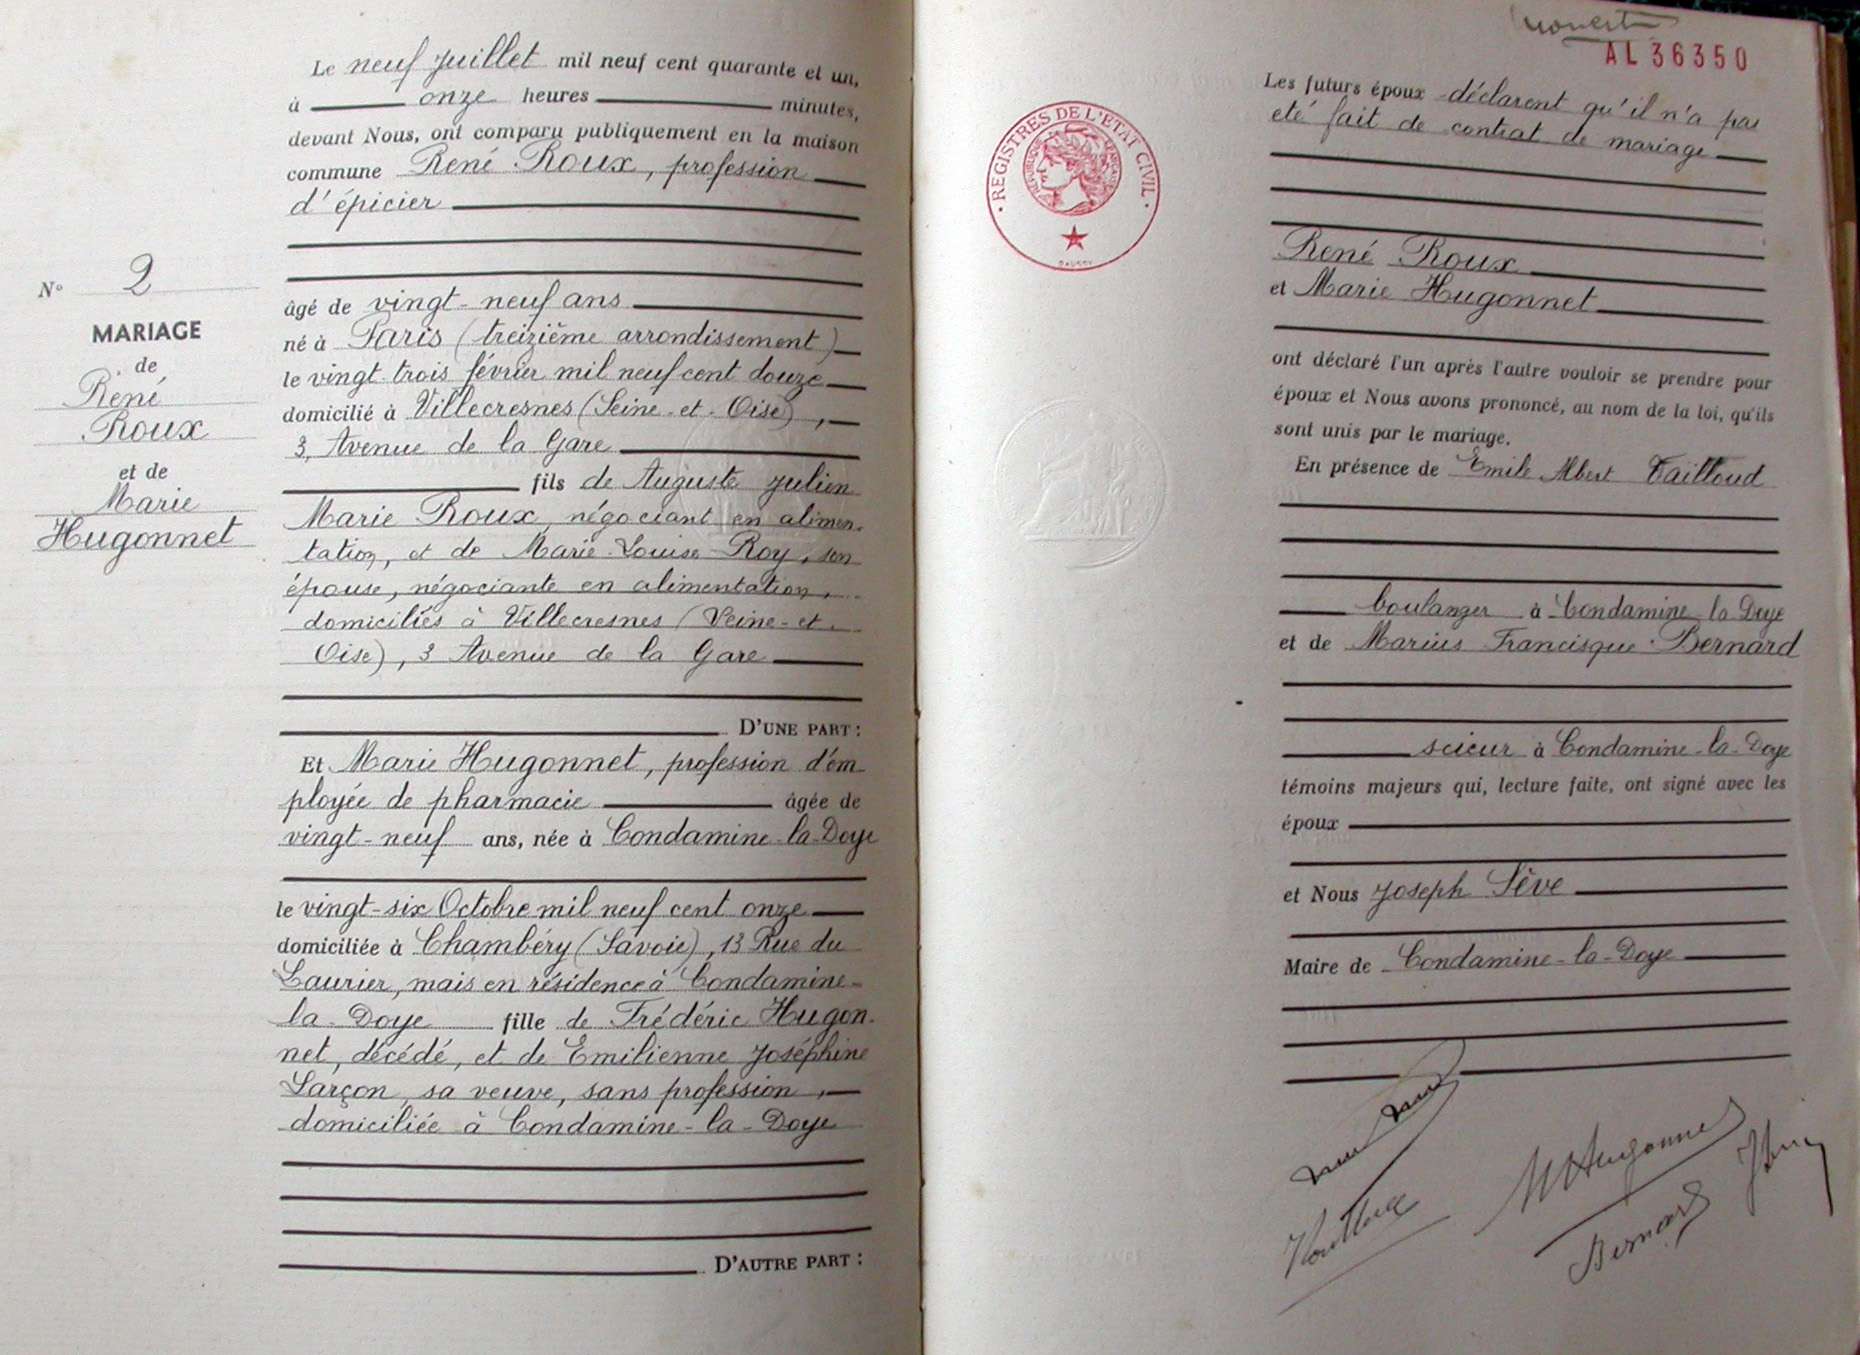 Le neuf juillet mil neuf cent quarante et un,
à onze heures minutes,
devant Nous, ont comparu publiquement en la maison
commune René Roux, profession
d'épicier
N° 2
MARIAGE
de
René
Roux
et de
Marie
Hugonnet
âgé de vingt-neuf ans
né à Paris (treizième arrondissement)
le vingt-trois février mil neuf cent douze
domicilié à Villecresnes (Seine-et-Oise),
3, Avenue de la Gare
fils de Auguste Julien
Marie Roux, négociant en alimen-
tation, et de Marie-Louise Roy, son
épouse, négociante en alimentation,
domiciliés à Villecresnes (Seine-et-
Oise), 3 Avenue de la Gare
D'UNE PART :
Et Marie Hugonnet, profession d'em
ployée de pharmacie âgée de
vingt-neuf ans, née à Condamine-la-Doye
le vingt-six Octobre mil neuf cent onze
domiciliée à Chambéry (Savoie), 13 Rue du
Laurier, mais en résidence à Condamine-
la-Doye fille de Frédéric Hugon-
net, décédé, et de Emilienne Joséphine
Larçon, sa veuve, sans profession,
domiciliée à Condamine-la-Doye
D'AUTRE PART :
AL 36350
REGISTRES DE L'ETAT CIVIL
REPUBLIQUE FRANCAISE
Les futurs époux déclarent qu'il n'a pas
eté fait de contrat de mariage
René Roux
et Marie Hugonnet
ont déclaré l'un après l'autre vouloir se prendre pour
époux et Nous avons prononcé, au nom de la loi, qu'ils
sont unis par le mariage.
En présence de Emile Albert Tailloud
boulanger à Condamine-la-Doye
et de Marius Francisque Bernard
scieur à Condamine-la-Doye
témoins majeurs qui, lecture faite, ont signé avec les
époux
et Nous Joseph Sève
Maire de Condamine-la-Doye
M Hugonnet
Bernard